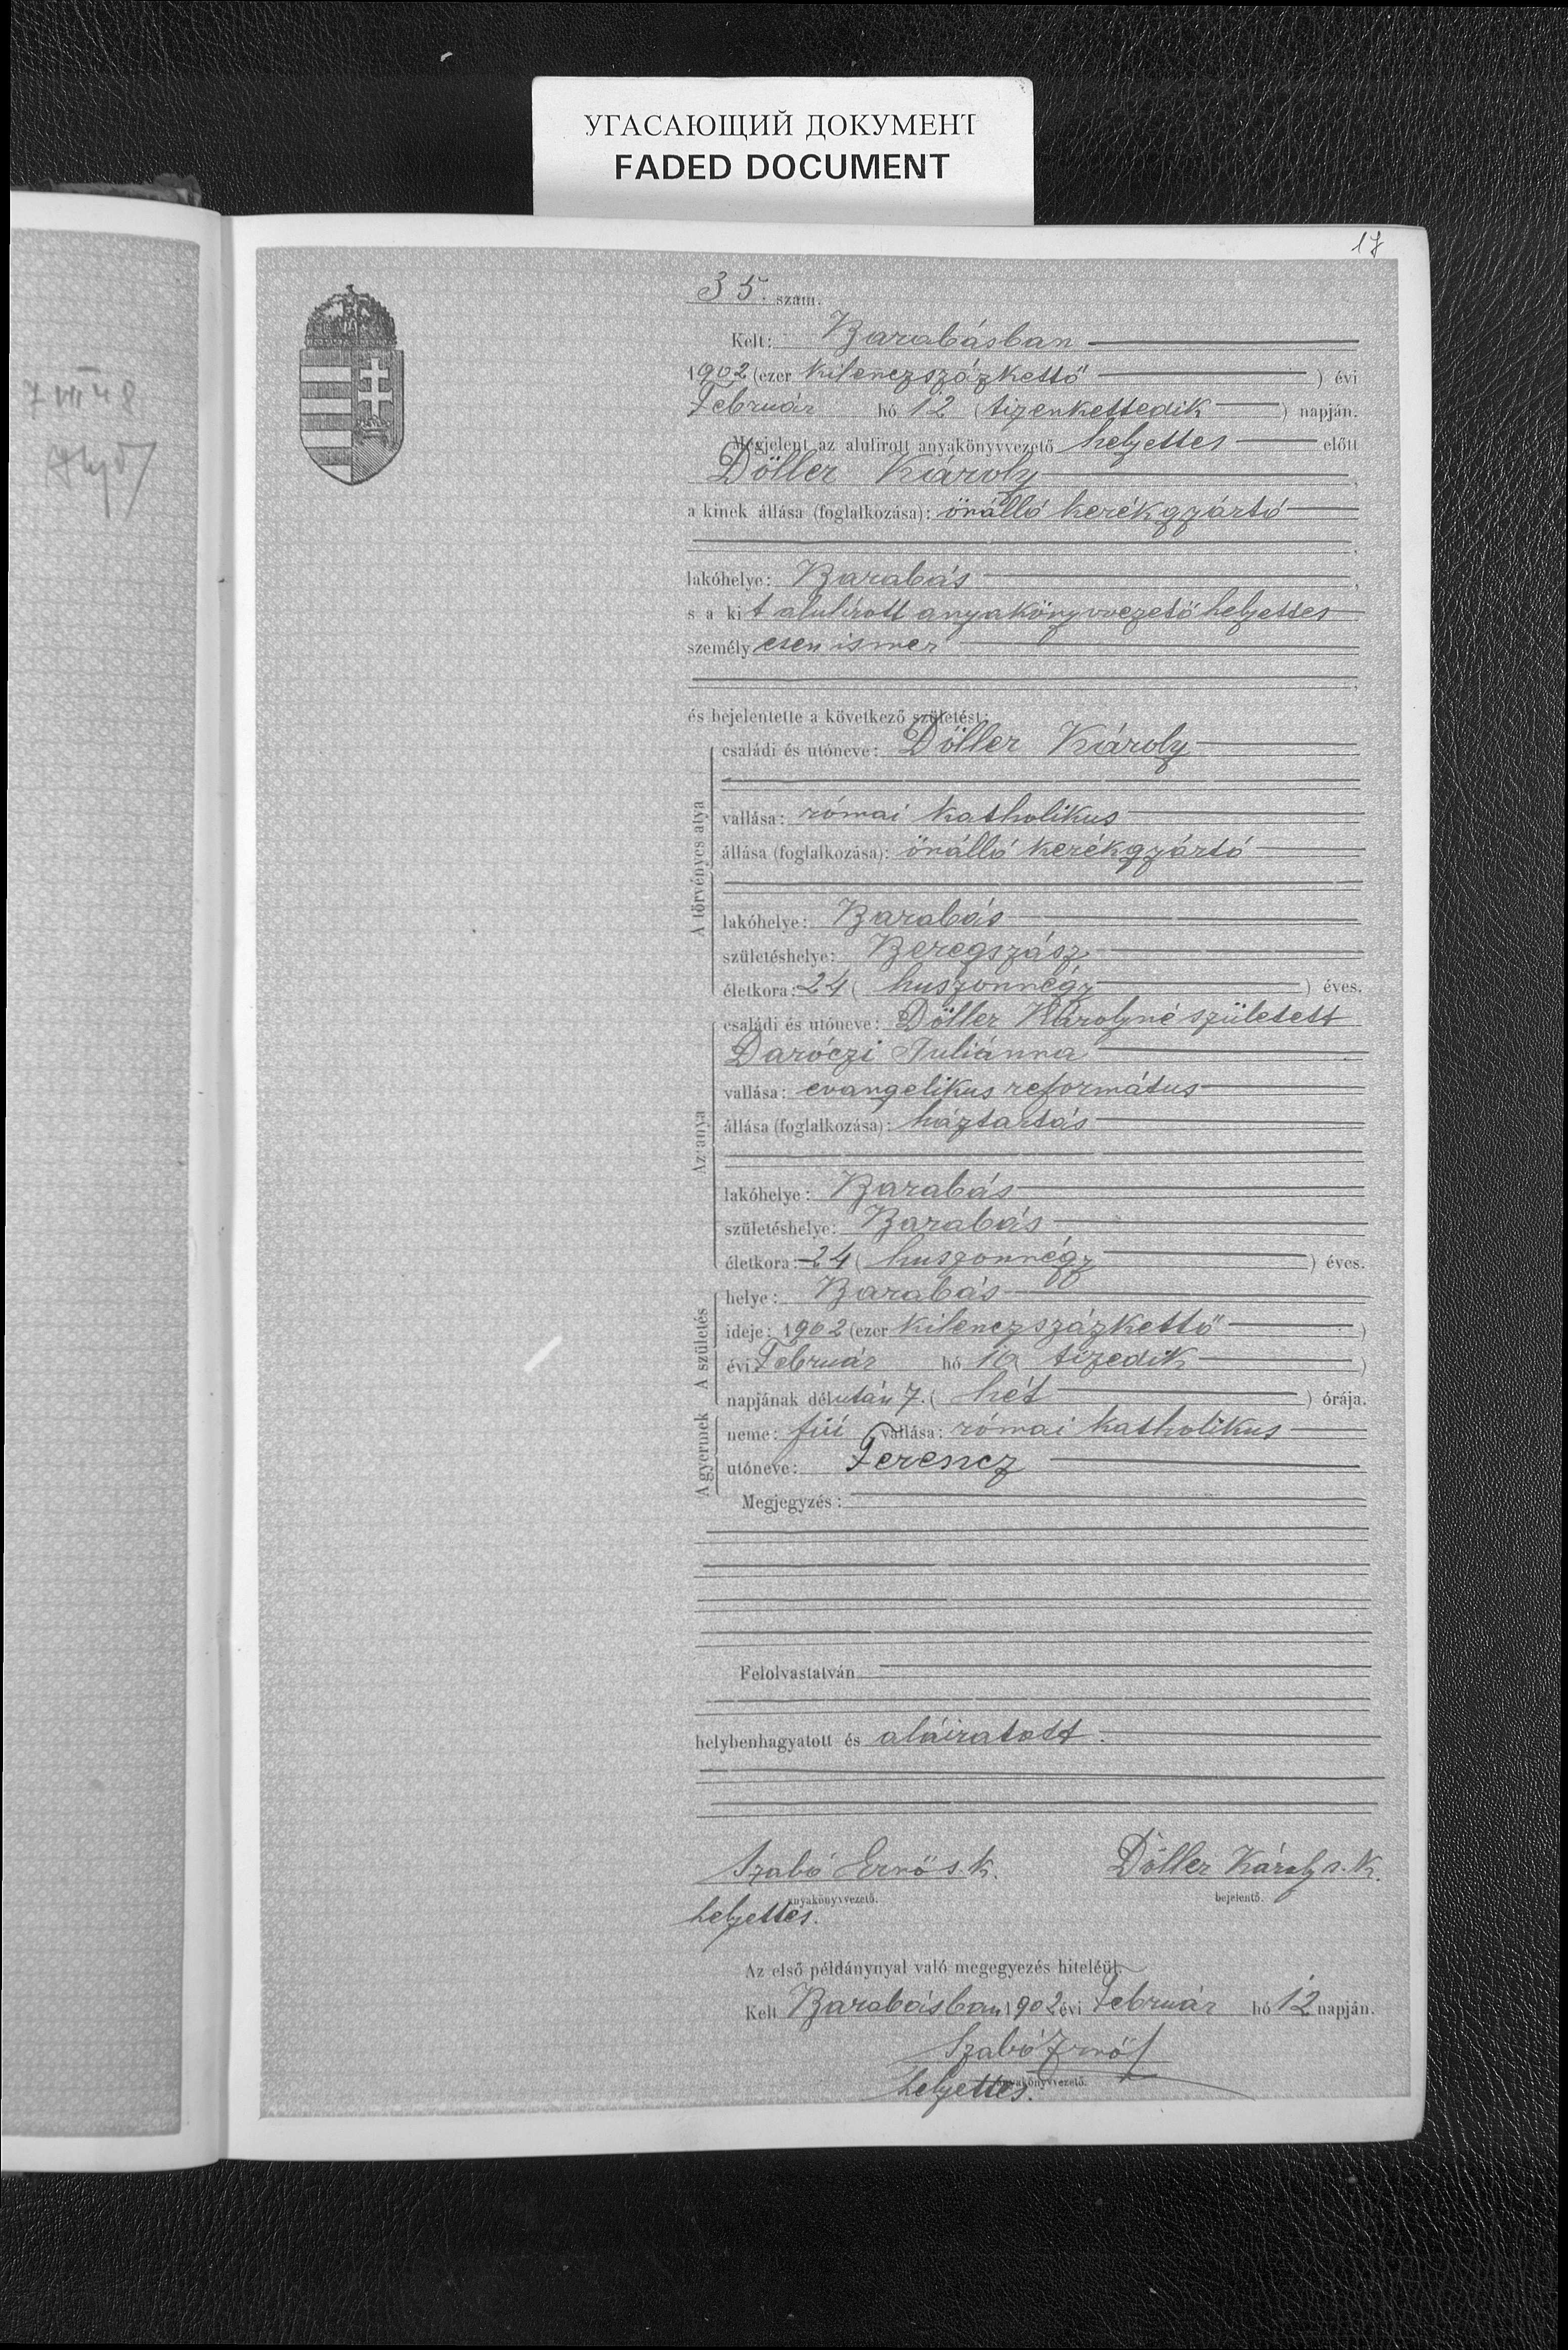 УГАСАЮЩИЙ ДОКУМЕНТ
FADED DOCUMENT
17
7 VII 48
35. szám.
Kelt: Barabásban
1902 (ezer kilenczszázkettő) évi
Február hó 12 (tizenkettedik) napján.
Megjelent az alulirott anyakönyvvezető helyettes előtt
Döller Károly,
a kinek állása (foglalkozása): önálló kerékgyártó
lakóhelye: Barabás,
s a kit alulirott anyakönyvvezető helyettes
személyesen ismer
és bejelentette a következő születést:
A törvényes atya
családi és utóneve: Döller Károly
vallása: római katholikus
állása (foglalkozása): önálló kerékgyártó
lakóhelye: Barabás
születéshelye: Beregszász
életkora: 24 (huszonnégy) éves.
Az anya
családi és utóneve: Döller Károlyné született
Daróczi Juliánna
vallása: evangelikus református
állása (foglalkozása): háztartás
lakóhelye: Barabás
születéshelye: Barabás
életkora: 24 (huszonnégy) éves.
A születés
helye: Barabás
ideje: 1902 (ezer kilenczszázkettő)
évi Február hó 10 (tizedik)
napjának délután 7. (hét) órája.
A gyermek
neme: fiú vallása: római katholikus
utóneve: Ferencz
Megjegyzés:
Felolvastatván
helybenhagyatott és aláiratott.
Szabó Ernő s. k. Döller Károly s. k.
anyakönyvvezető. bejelentő.
helyettes.
Az első példánynyal való megegyezés hiteléül.
Kelt Barabásban 1902 évi Február hó 12 napján.
Szabó Ernő
anyakönyvvezető.
helyettes.